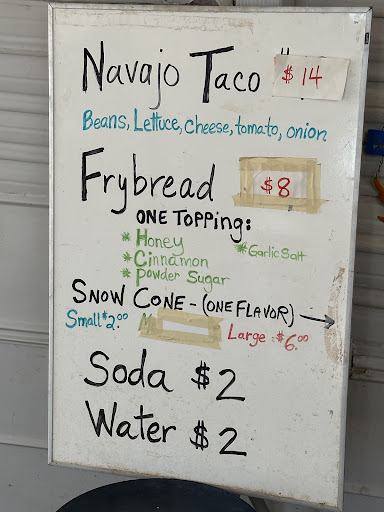 Navajo Taco $14
Beans, Lettuce, Cheese, tomato, onion
Frybread $8
ONE TOPPING:
* Honey * Garlic Salt
* Cinnamon
* Powder Sugar
SNOW CONE - (ONE FLAVOR) →
Small $2.00 M Large $6.00
Soda $2
Water $2